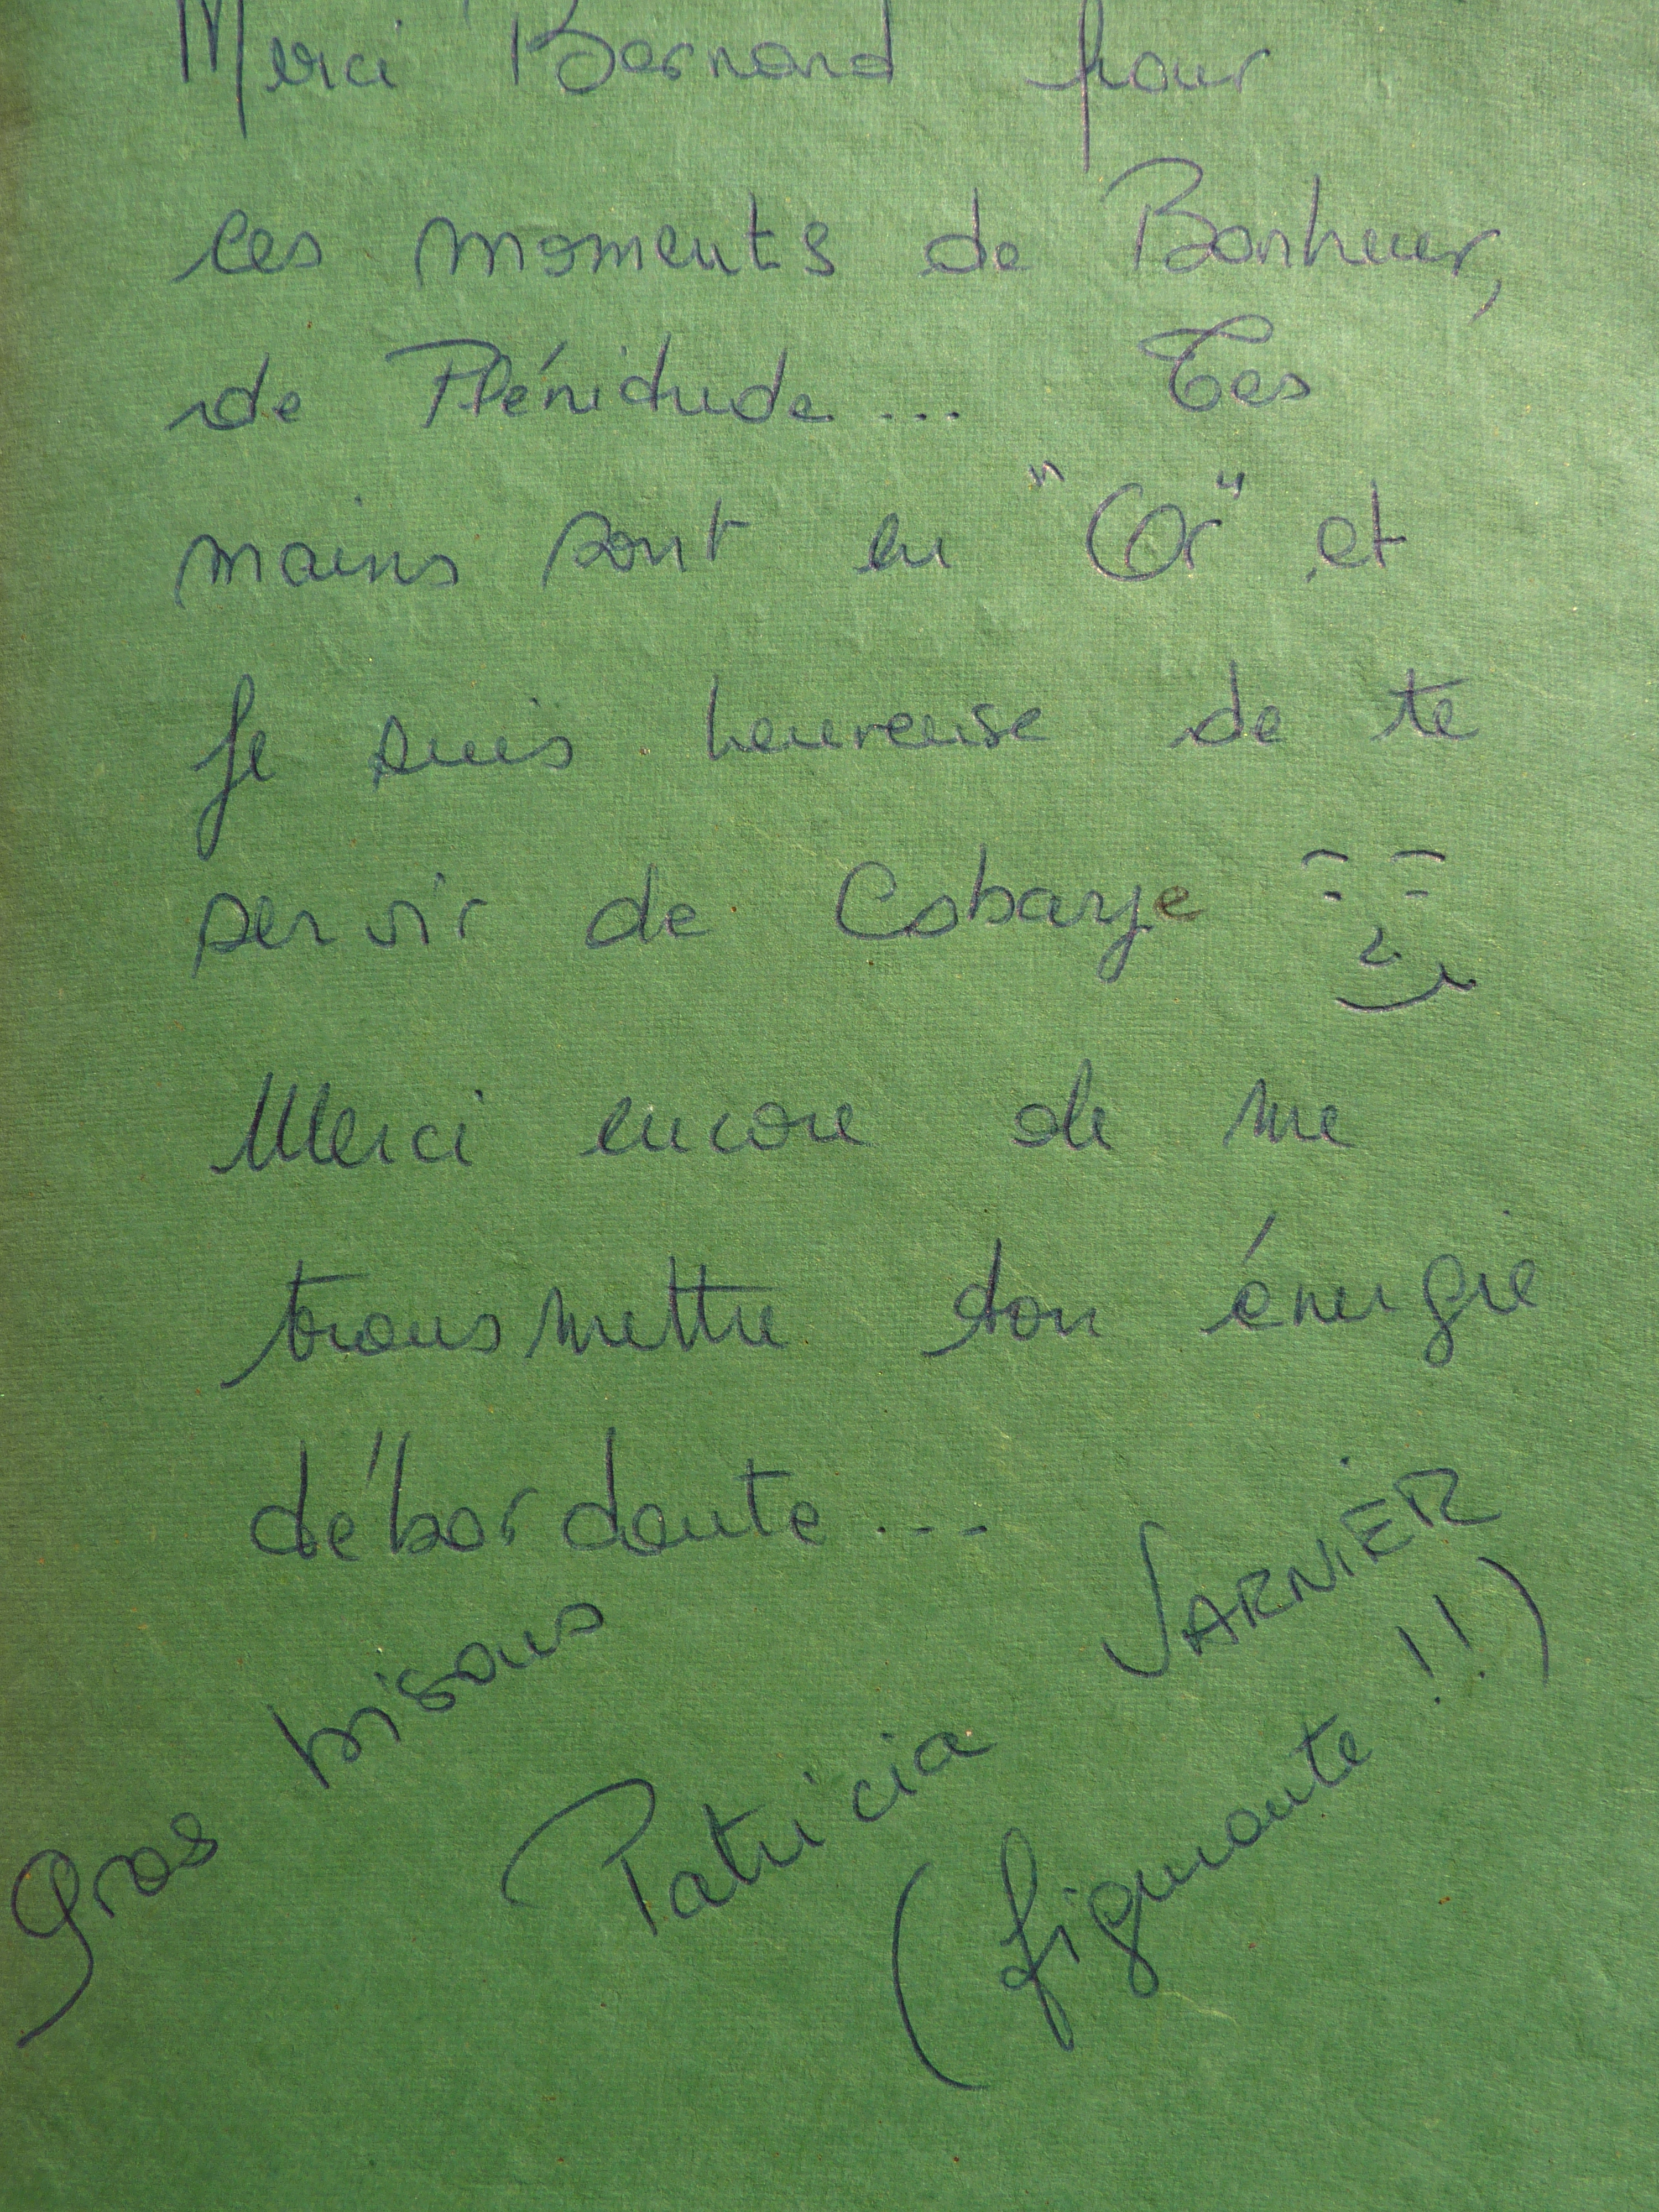 Merci Bernard pour
ces moments de Bonheur,
de Plénitude... Tes
mains sont en "Or" et
je suis heureuse de te
servir de Cobaye
Merci encore de me
transmettre ton énergie
débordante...
Gros bisous
Patricia JARNIER
(figurante !!)